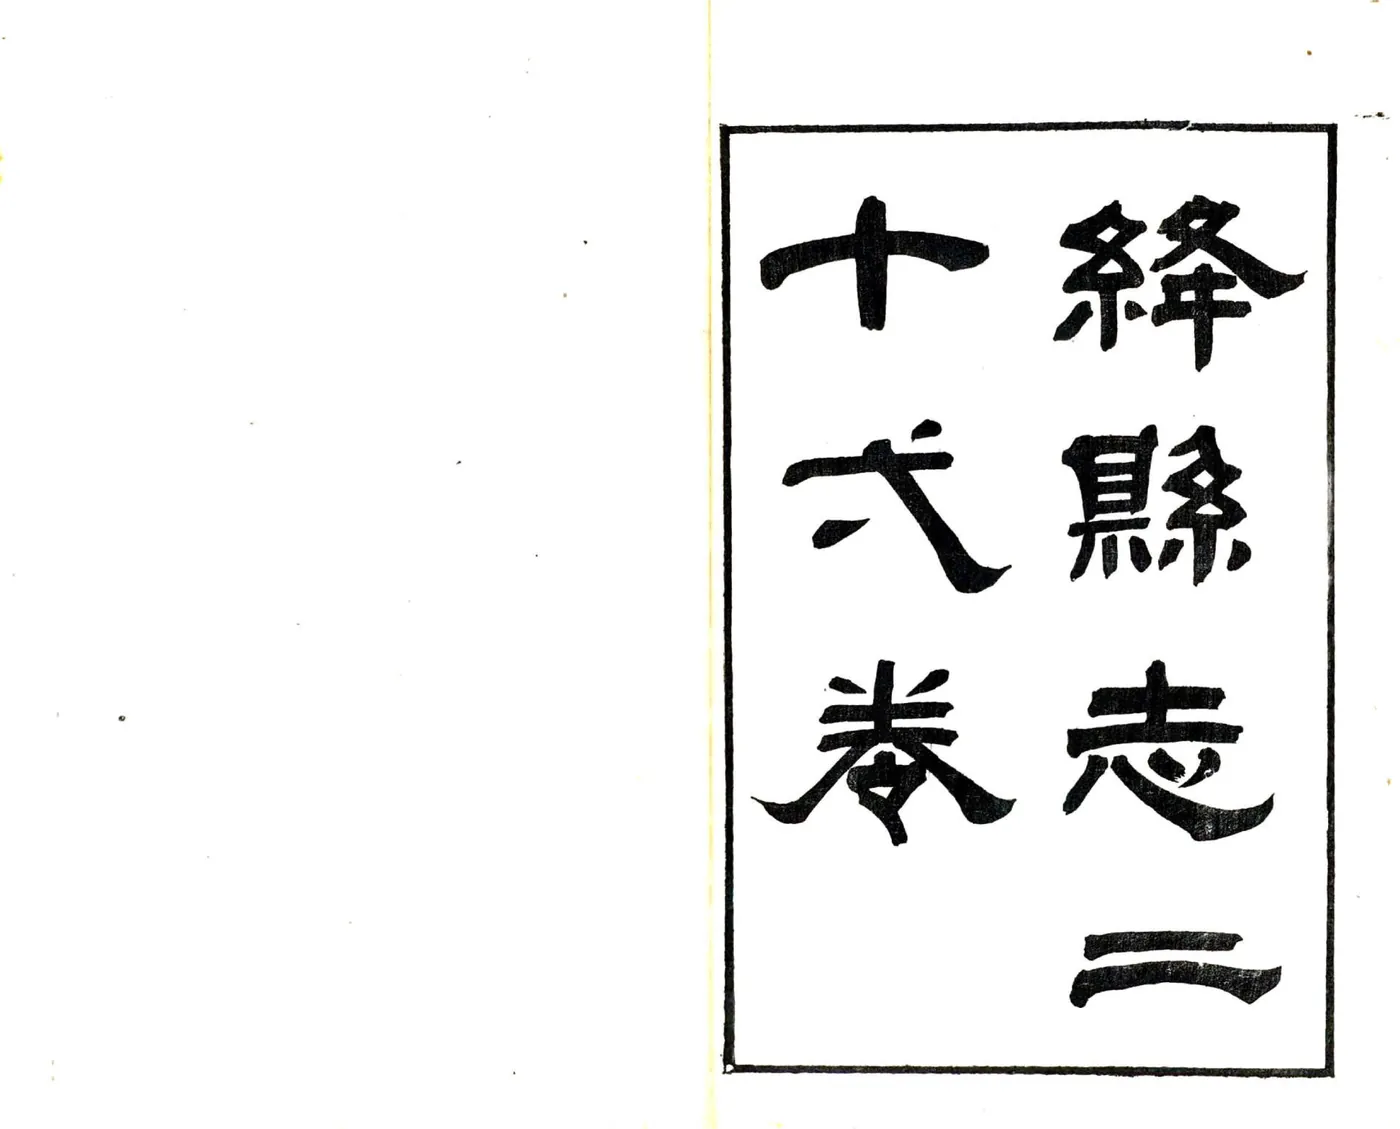 絳縣志二
十弌卷